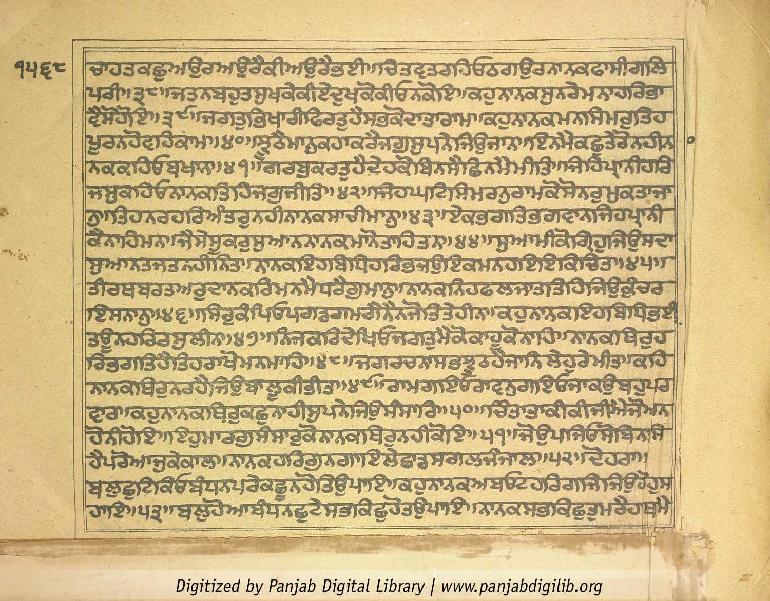 ੧੫੬੮
ਚਾਹਤਕਛੁਅਉਰਅਉਰੈਕੀਅਉਰੈਭਈ॥ਚਿਤਵਤਰਹਿਓਠਗਉਰਨਾਨਕਫਾਸੀਗਲਿ
ਪਰੀ॥੩੮॥ਜਤਨਬਹੁਤਸੁਖਕੇਕੀਏਦੁਖਕੋਕੀਓਨਕੋਇ॥ਕਹੁਨਾਨਕਸੁਨਰੇਮਨਾਹਰਿਭਾ
ਵੈਸੋਹੋਇ॥੩੯॥ਜਗਤੁਭਿਖਾਰੀਫਿਰਤੁਹੈਸਭਕੋਦਾਤਾਰਾਮ॥ਕਹੁਨਾਨਕਮਨਸਿਮਰੁਤਿਹ
ਪੂਰਨਹੋਵਹਿਕਾਮ॥੪੦॥ਝੂਠੈਮਾਨੁਕਹਾਕਰੈਜਗੁਸੁਪਨੇਜਿਉਜਾਨ॥ਇਨਮੈਕਛੁਤੇਰੋਨਹੀਨਾ
ਨਕਕਹਿਓਬਖਾਨ॥੪੧॥ਗਰਬੁਕਰਤੁਹੈਦੇਹਕੋਬਿਨਸੈਛਿਨਮੈਮੀਤਿ॥ਜਿਹਿਪ੍ਰਾਨੀਹਰਿ
ਜਸੁਕਹਿਓਨਾਨਕਤਿਹਿਜਗੁਜੀਤਿ॥੪੨॥ਜਿਹਘਟਿਸਿਮਰਨੁਰਾਮਕੋਸੋਨਰੁਮੁਕਤਾਜਾ
ਨੁ॥ਤਿਹਨਰਹਰਿਅੰਤਰੁਨਹੀਨਾਨਕਸਾਚੀਮਾਨੁ॥੪੩॥ਏਕਭਗਤਿਭਗਵਾਨਜਿਹਪ੍ਰਾਨੀ
ਕੈਨਾਹਿਮਨਿ॥ਜੈਸੇਸੂਕਰਸੁਆਨਨਾਨਕਮਾਨੋਤਾਹਿਤਨ॥੪੪॥ਸੁਆਮੀਕੋਗ੍ਰਿਹੁਜਿਉਸਦਾ
ਸੁਆਨਤਜਤਨਹੀਨਿਤ॥ਨਾਨਕਇਹਬਿਧਿਹਰਿਭਜਉਇਕਮਨਹਇਇਕਿਚਿਤ॥੪੫॥
ਤੀਰਥਬਰਤਅਰੁਦਾਨਕਰਿਮਨਮੈਧਰੈਗੁਮਾਨੁ॥ਨਾਨਕਨਿਹਫਲਜਾਤਤਿਹਿਜਿਉਕੁੰਚਰ
ਇਸਨਾਨੁ॥੪੬॥ਸਿਰੁਕੰਪਿਓਪਗਡਗਮਗੈਨੈਨਜੋਤਿਤੇਹੀਨ॥ਕਹੁਨਾਨਕਇਹਬਿਧਿਭਈ
ਤਊਨਹਰਿਰਸੁਲੀਨ॥੪੭॥ਨਿਜਕਰਿਦੇਖਿਓਜਗਤੁਮੈਕੋਕਾਹੂਕੋਨਾਹਿ॥ਨਾਨਕਥਿਰੁਹ
ਰਿਭਗਤਿਹੈਤਿਹਰਾਖੋਮਨਮਾਹਿ॥੪੮॥ਜਗਰਚਨਾਸਭਝੂਠਹੈਜਾਨਿਲੇਹੁਰੇਮੀਤ॥ਕਹਿ
ਨਾਨਕਥਿਰੁਨਰਹੈਜਿਉਬਾਲੂਕੀਭੀਤ॥੪੯॥ਰਾਮਗਇਓਰਾਵਨੁਗਇਓਜਾਕਉਬਹੁਪਰ
ਵਾਰ॥ਕਹੁਨਾਨਕਥਿਰੁਕਛੁਨਾਹੀਸੁਪਨੇਜਿਉਸੰਸਾਰਿ॥੫੦॥ਚਿੰਤਾਤਾਕੀਕੀਜੀਐਜੋਅਨ
ਹੋਨੀਹੋਇ॥ਇਹੁਮਾਰਗੁਸੰਸਾਰੁਕੋਨਾਨਕਥਿਰੁਨਹੀਕੋਇ॥੫੧॥ਜੋਉਪਜਿਓਸੋਬਿਨਸਿ
ਹੈਪਰੋਆਜੁਕੇਕਾਲ॥ਨਾਨਕਹਰਿਗੁਨਗਾਇਲੇਛਾਡਸਗਲਜੰਜਾਲ॥੫੨॥ਦੋਹਰਾ॥
ਬਲੁਛੁਟਿਕਿਓਬੰਧਨਪਰੇਕਛੂਨਹੋਤਿਉਪਾਇ॥ਕਹੁਨਾਨਕਅਬਓਟਹਰਿਗਜਿਜਿਉਹੋਹੁਸ
ਹਾਇ॥੫੩॥ਬਲੁਹੋਆਬੰਧਨਛੁਟੇਸਭਕਿਛੁਹੋਤਉਪਾਇ॥ਨਾਨਕਸਭਕਿਛੁਤੁਮਰੈਹਾਥਮੈ
Digitized by Panjab Digital Library | www.panjabdigilib.org